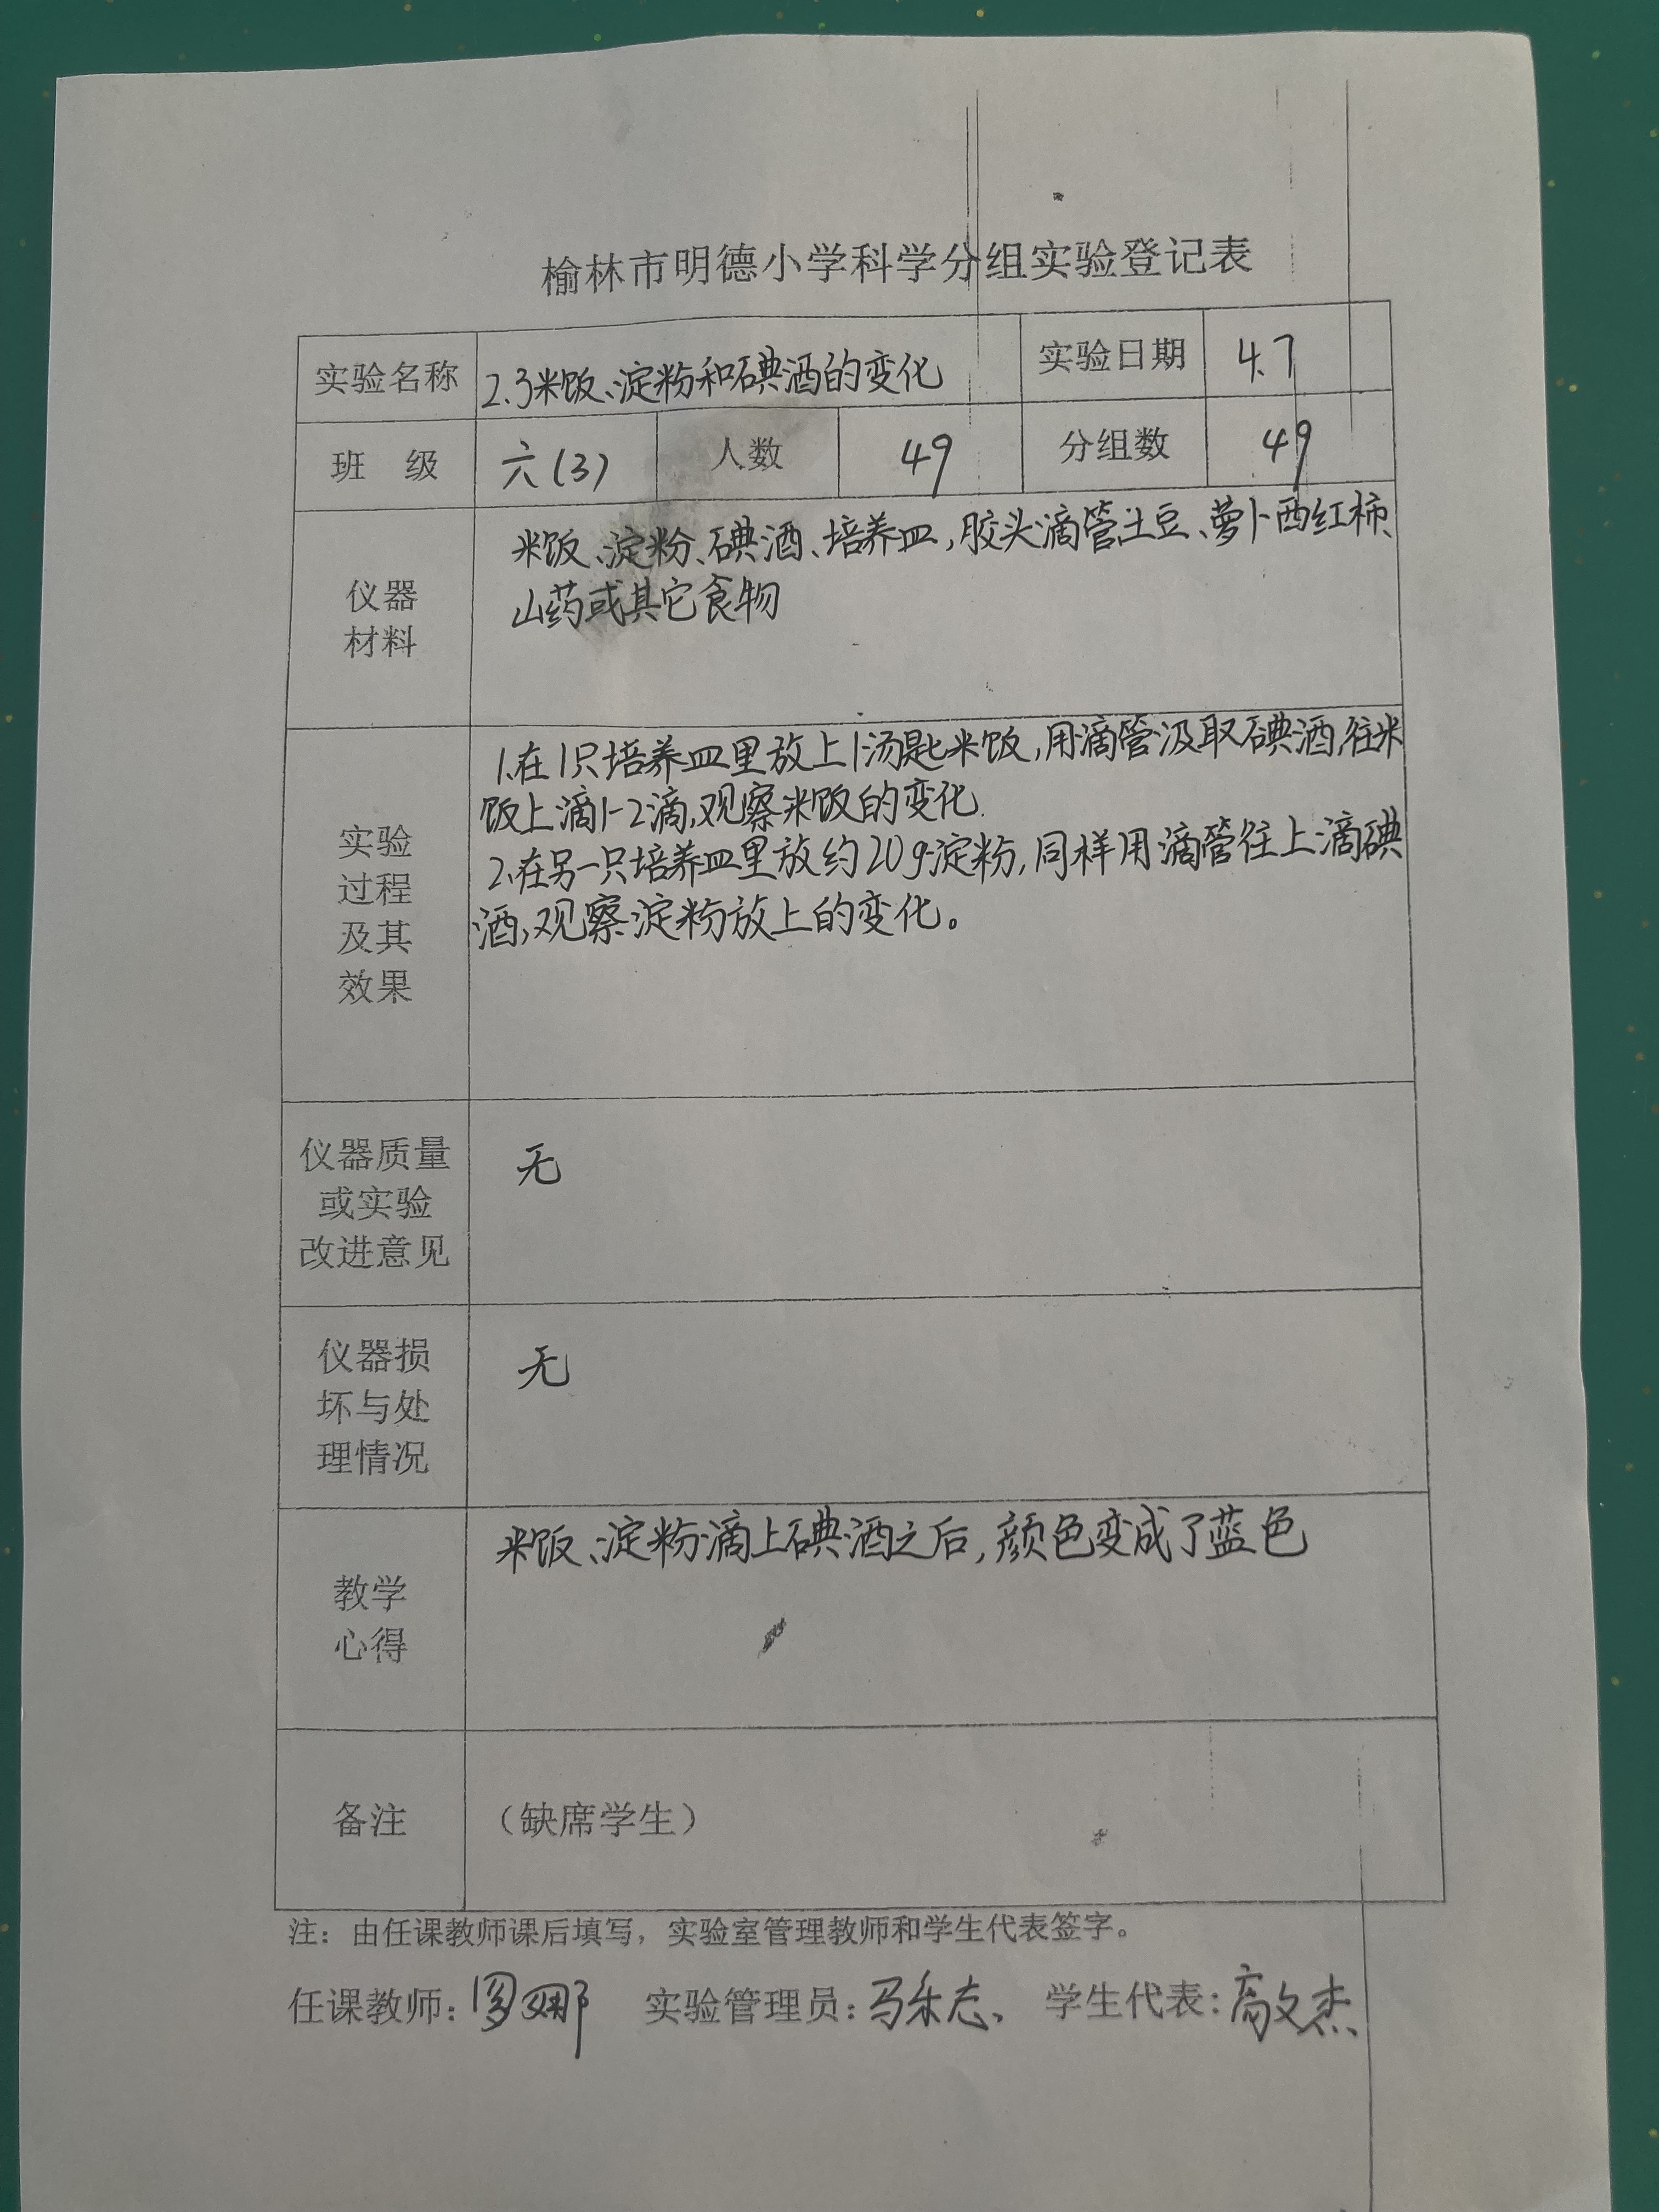 榆林市明德小学科学分组实验登记表
实验名称 2.3米饭、淀粉和碘酒的变化 实验日期 4.7
班 级 六(3) 人数 49 分组数 49
米饭、淀粉、碘酒、培养皿,胶头滴管土豆、萝卜西红柿、
山药或其它食物
仪器
材料
1.在1只培养皿里放上1汤匙米饭,用滴管汲取碘酒,往米
饭上滴1-2滴,观察米饭的变化.
2.在另一只培养皿里放约20g淀粉,同样用滴管往上滴碘
酒,观察淀粉放上的变化。
实验
过程
及其
效果
仪器质量
或实验
改进意见
无
仪器损
坏与处
理情况
无
米饭、淀粉滴上碘酒之后,颜色变成了蓝色
教学
心得
备注 (缺席学生)
注：由任课教师课后填写，实验室管理教师和学生代表签字。
任课教师: 罗娜 实验管理员: 马 志、 学生代表: 高文杰、